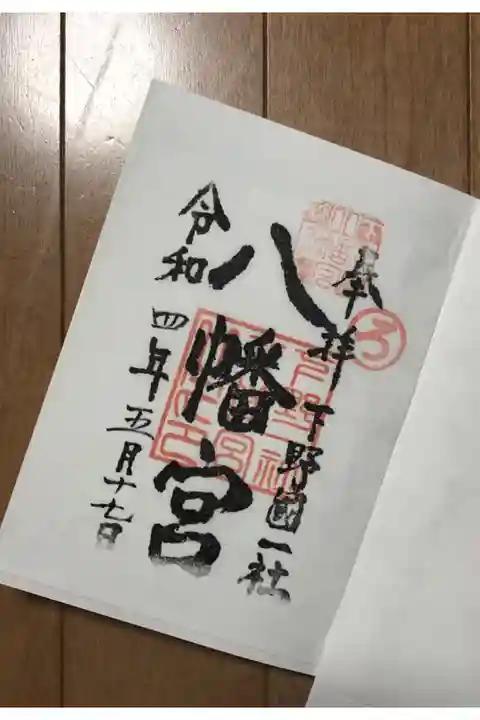 奉拝 下野國一社
八幡宮
令和四年五月十七日
ろ